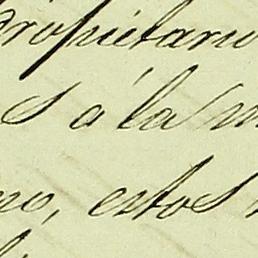 propietario
s á la m
no, estos